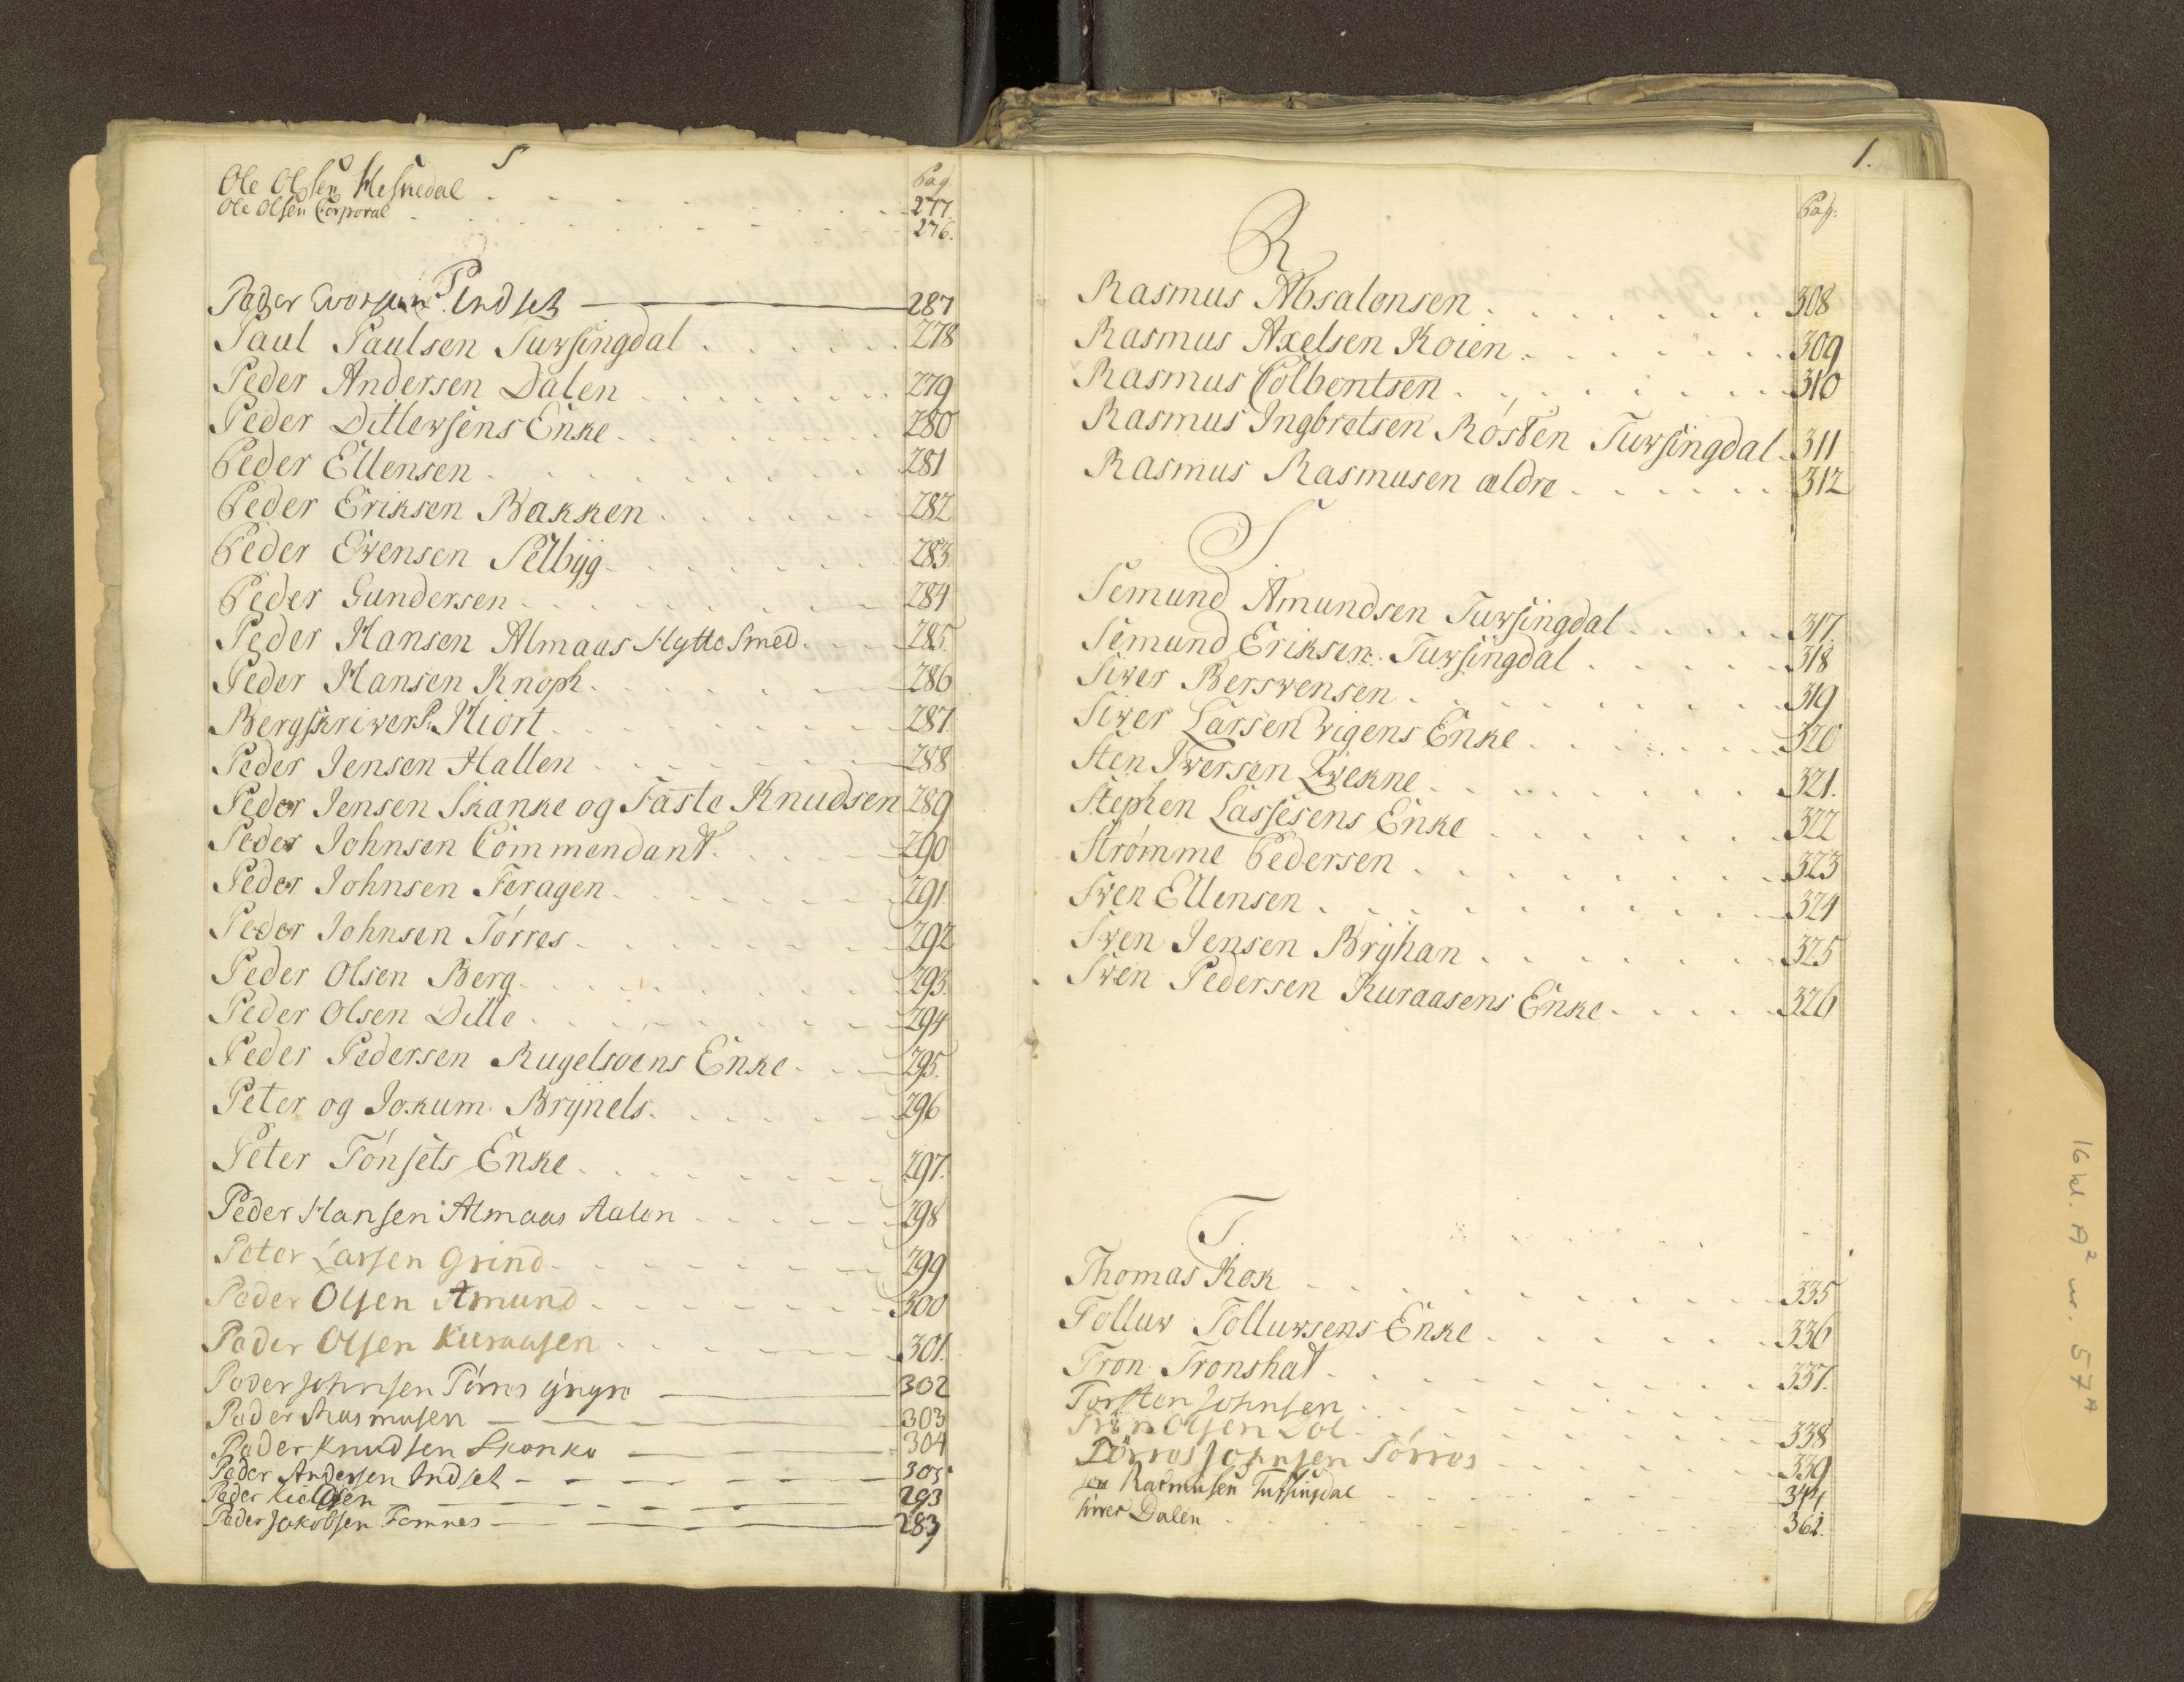 Pag.
Ole Olsen Heskedal 277.
Ole Olsen Corporal 276.
P
Peder Indset 287
Paul Paulsen Tuvsingdal 278
Peder Andersen Dalen 279
Peder Ditlevsens Enke 280
Peder Ellensen 281
Peder Eriksen Bakken 282
Peder Evensen Selbÿg 283.
Peder Gundersen 284
Peder Hansen Almaas Hytte Smed 285.
Peder Hansen Knoph 286
Bergskriver P. Hiort 287.
Peder Jensen Hallen 288
Peder Jensen Skanke og Faste Knudsen 289
Peder Johnsen Commendant 290
Peder Johnsen Feragen 291.
Peder Johnsen Tórres 292
Peder Olsen Berg 293.
Peder Olsen Dille 294
Peder Pedersen Rugelsoens Enke 295.
Peter og Jokum Brÿnels 296
Peter Tónsets Enke 297.
Peder Hansen Almaas Aalen 298
Peter Larsen Grind 299
Peder Olsen Amund 300
Peder Olsen Kuraasen 301.
Peder Johnsen Tórres ÿngre 302
Peder Rasmusen 303
Peder Knudsen Skanke 304
Peder Andersen Indset 305
Peder Kieldsen 293
Peder Jakobsen Tamnes 283
1.
Pag.
R
Rasmus Absalonsen 308
Rasmus Axelsen Koien 309
Rasmus Colbentsen 310
Rasmus Ingbretsen Rósten Tuvsingdal 311
Rasmus Rasmusen ældre 312
S
Semund Amundsen Tuvsingdal 317.
Semund Eriksen Tuvsingdal 318
Siver Bersvensen 319
Siver Larsen Vigens Enke 320
Sten Iversen Qvekne 321.
Stephen Lassesens Enke 322
Strømme Pedersen 323
Sven Ellensen 324
Sven Jensen Brÿhan 325
Sven Pedersen Kuraasens Enke 326
T.
Thomas Kok 335
Tolluv Tolluvsens Enke 336
Tron Tronshat 337.
Torsten Johnsen
Tron Olsen Dol 338
Tórres Johnsen Tórres 339
Rasmusen Tufsingdal 344
Dalen 362.
16 kl. A² nr. 57 A